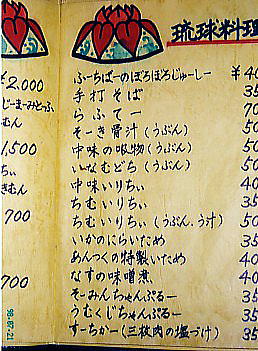 ¥2,000
じーまーみとふ
むん
1,500
ちぃ
きむん
700
700
琉球料理
ふーちばーのぼろぼろじゅーしー ¥40
手打そば 35
らふてー 70
そーき骨汁(うぶん) 50
中味の吸物(うぶん) 50
いなむどち(うぶん) 50
中味いりちぃ 40
あんむいりちぃ 35
ちむいりちぃ 35
ちむいりちぃ(うぶん、う汁) 50
いかのにらいため 35
あんつくの特製いため 40
なすの味噌煮 40
そーみんちゃんぷるー 35
うむくじちゃんぷるー 35
すーちかー(三枚肉の塩づけ) 35
98.07.21